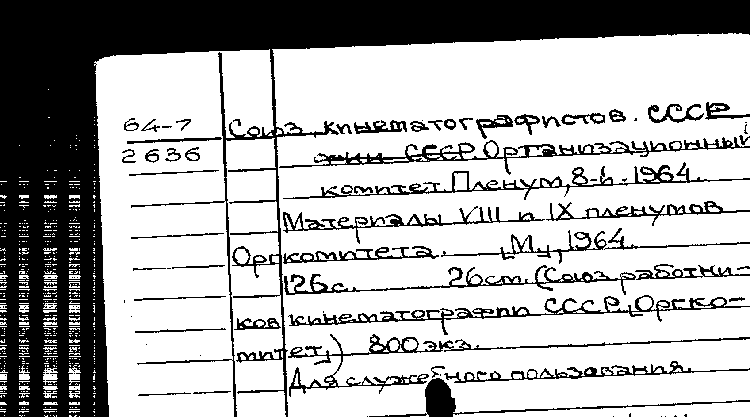 64-7 Союз кинематографистов. СССР
2636 фии СССР. Организационный
комитет. Пленум, 8-й. 1964.
Материалы VIII и IX пленумов
Оргкомитета. [М], 1964.
126с. 26см. (Союз работни-
ков кинематографии СССР, [Оргко-
митет]) 800 экз.
Для служебного пользования.